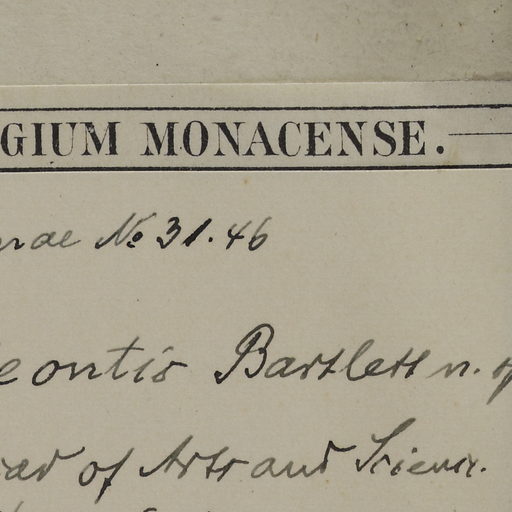 GIUM MONACENSE.
rae No 31.46
eontis Bartlett n. sp
ad of Arts and Science.